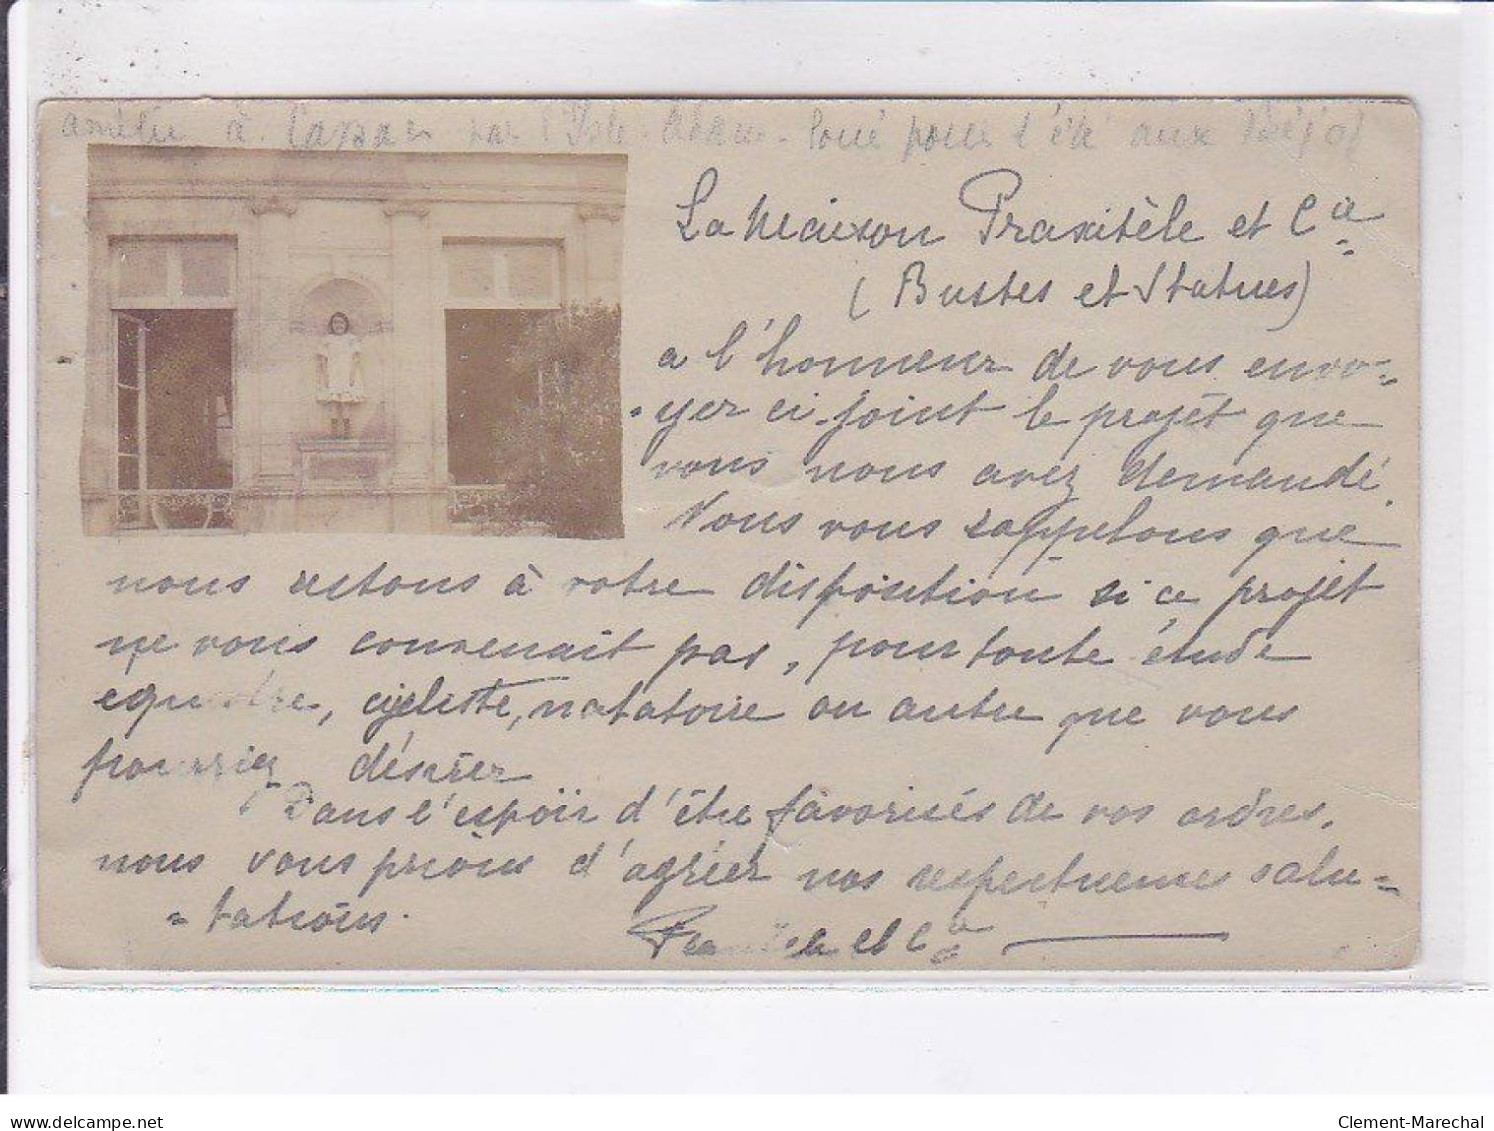 à Cassan par l'Isle-Adam. Loué pour l'été aux
La Maison Praxitèle et Cie
(Bustes et Statues)
a l'honneur de vous envo-
-yer ci-joint le projèt que
vous nous avez demandé.
Nous vous rappelons que
nous restons à votre disposition si ce projet
ne vous convenait pas, pour toute étude
equestre, cycliste, natatoire ou autre que vous
pourriez désirer
Dans l'espoir d'être favorisés de vos ordres,
nous vous prions d'agréer nos respectueuses salu-
-tations.
Praxitèle et Cie
www.delcampe.net
Clement-Marechal